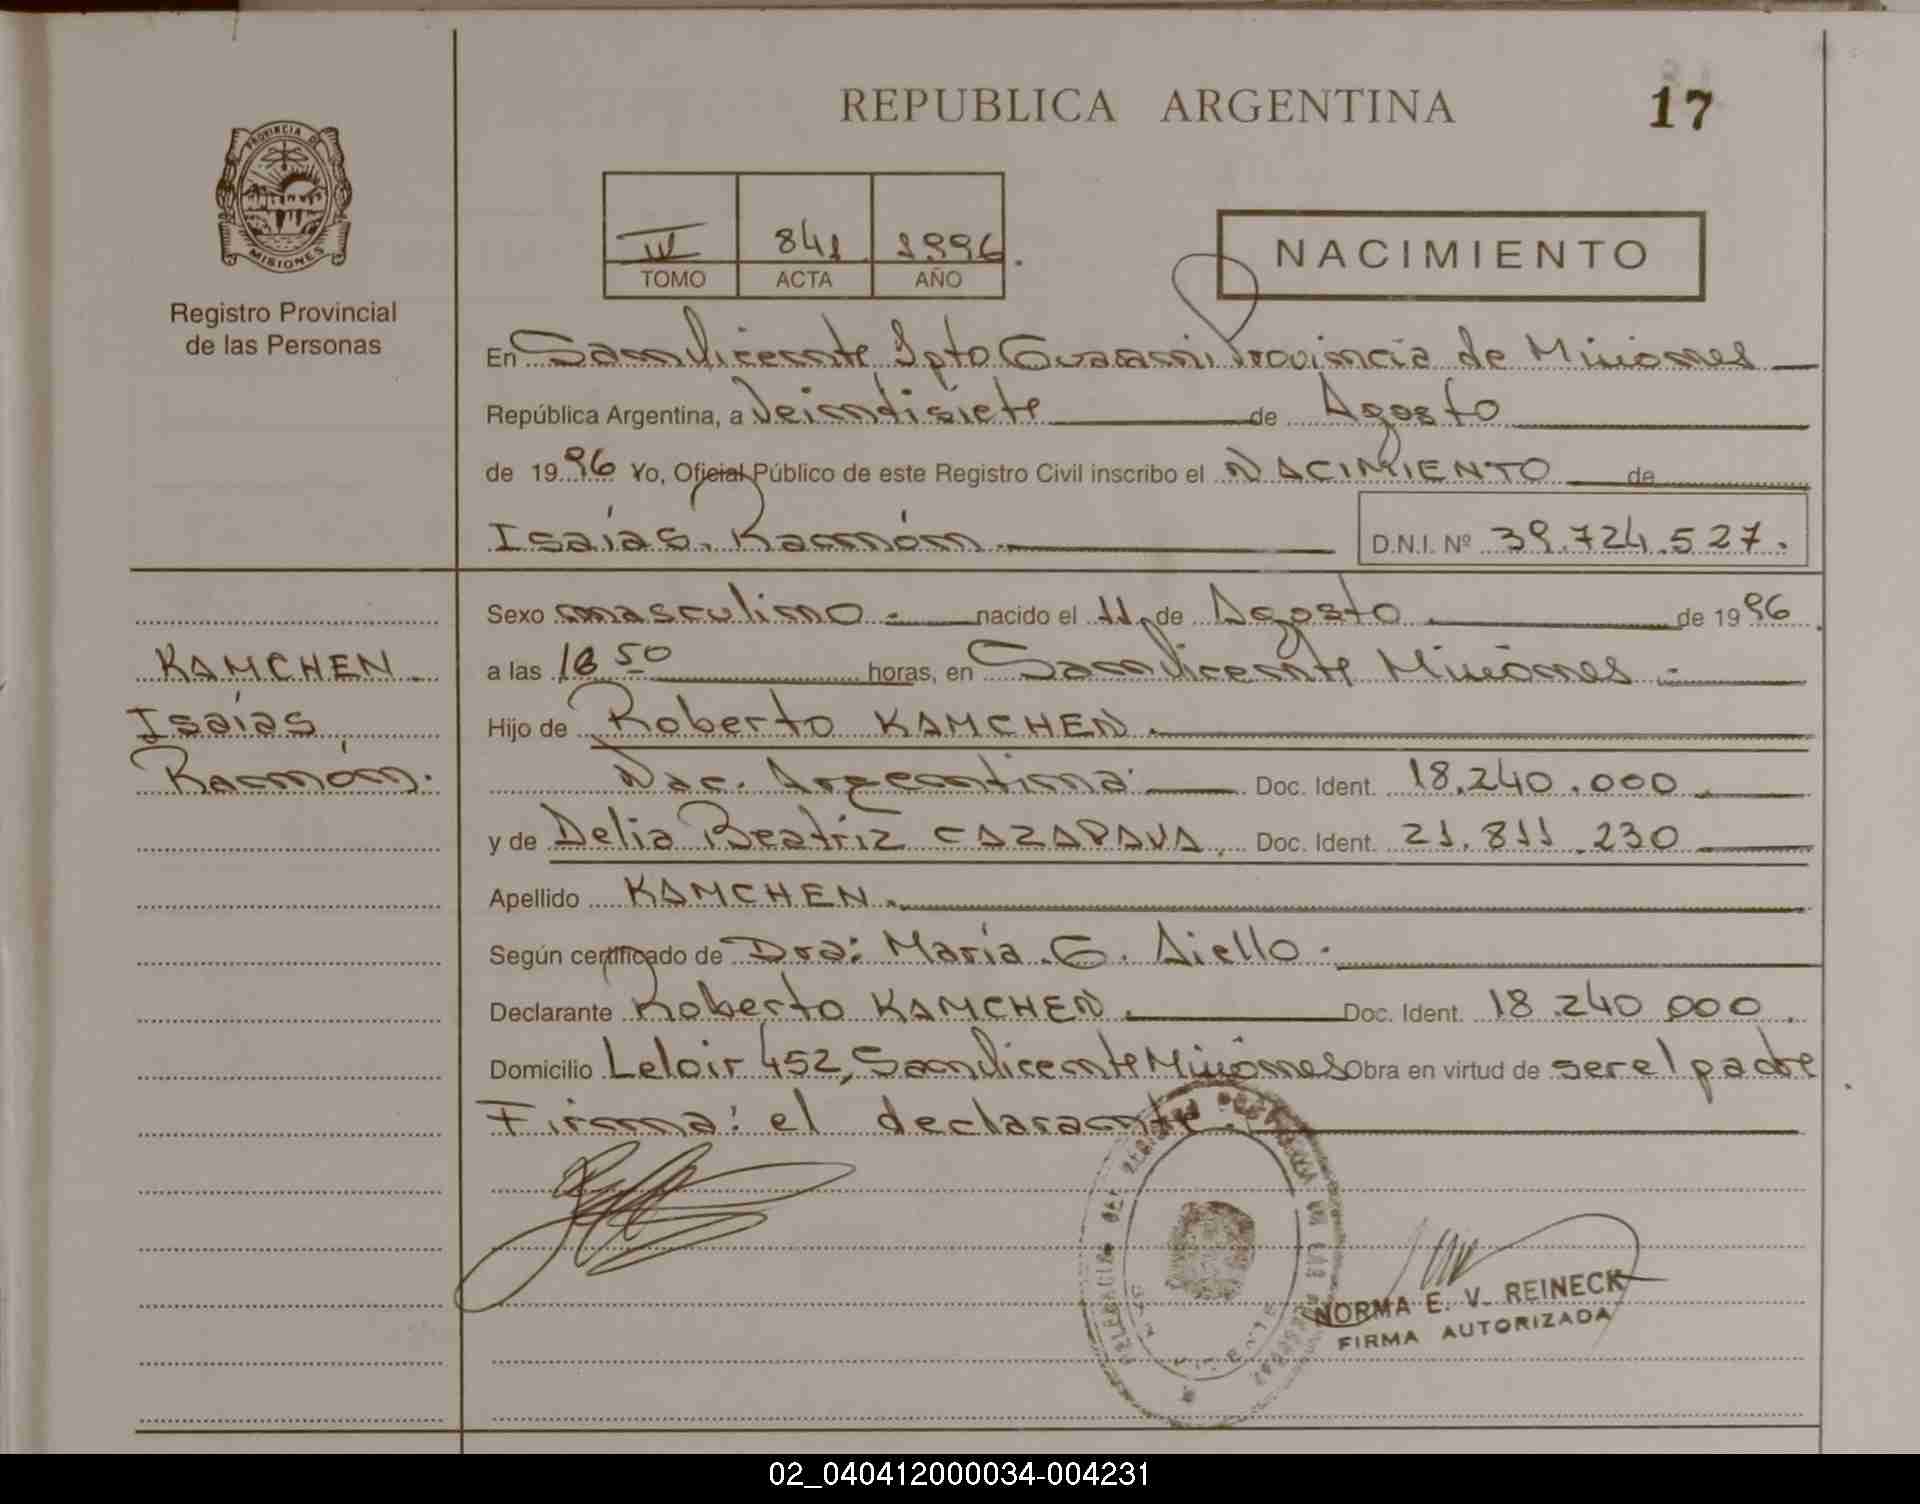 REPUBLICA ARGENTINA
17
PROVINCIA DE
MISIONES
Registro Provincial
de las Personas
IV 841 1996.
TOMO ACTA AÑO
NACIMIENTO
En San Vicente Dpto Guaraní Provincia de Misiones
República Argentina, a Veintisiete de Agosto
de 1996 Yo, Oficial Público de este Registro Civil inscribo el NACIMIENTO de
Isaías Ramón D.N.I. Nº 39.724.527.
Sexo masculino.- nacido el 11 de Agosto de 1996
a las 50 horas, en San Vicente Misiones.-
Hijo de Roberto KAMCHEN.
Nac. Argentina. Doc. Ident. 18.240.000
y de Delia Beatriz CAZAPAVA. Doc. Ident. 21.811.230
Apellido KAMCHEN.
Según certificado de Dra: María G. Aiello.
Declarante Roberto KAMCHEN. Doc. Ident. 18.240.000.
Domicilio Leloir 452, San Vicente Misiones Obra en virtud de ser el padre
Firma: el declarante.
KAMCHEN.
Isaías
Ramón.
NORMA E. V. REINECK
FIRMA AUTORIZADA
02_040412000034-004231